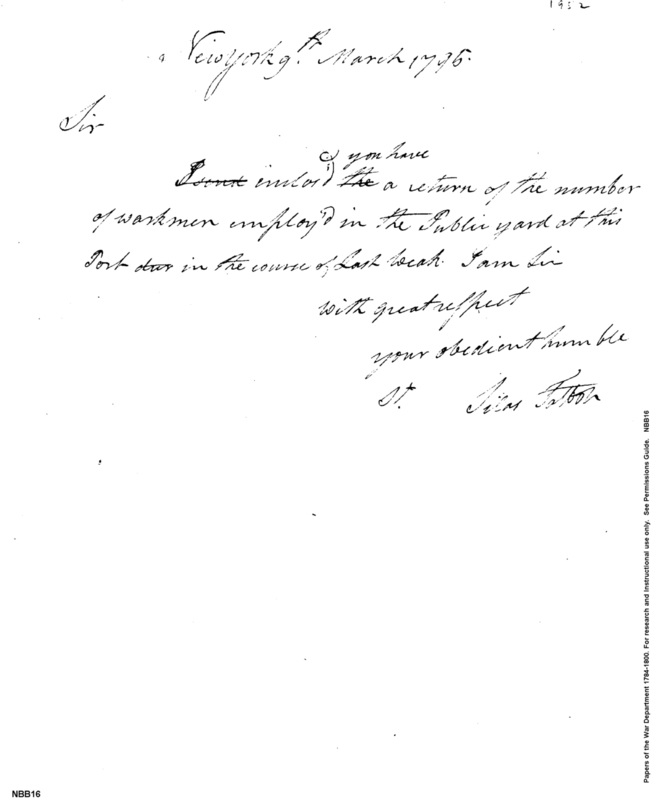 1932
New York 9th. March 1795.
Sir
you have
I send inclos'd the a return of the number
of workmen employ'd in the Public yard at this
Port dur in the course of Last Weak. I am Sir
with great respect
your obedient humble
St. Silas Talbot
Papers of the War Department 1784-1800. For research and Instructional use only. See Permissions Guide. NBB16
NBB16